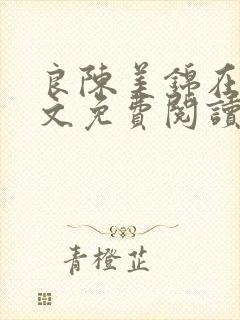 良陳美錦在
文免費閱讀
青橙芷